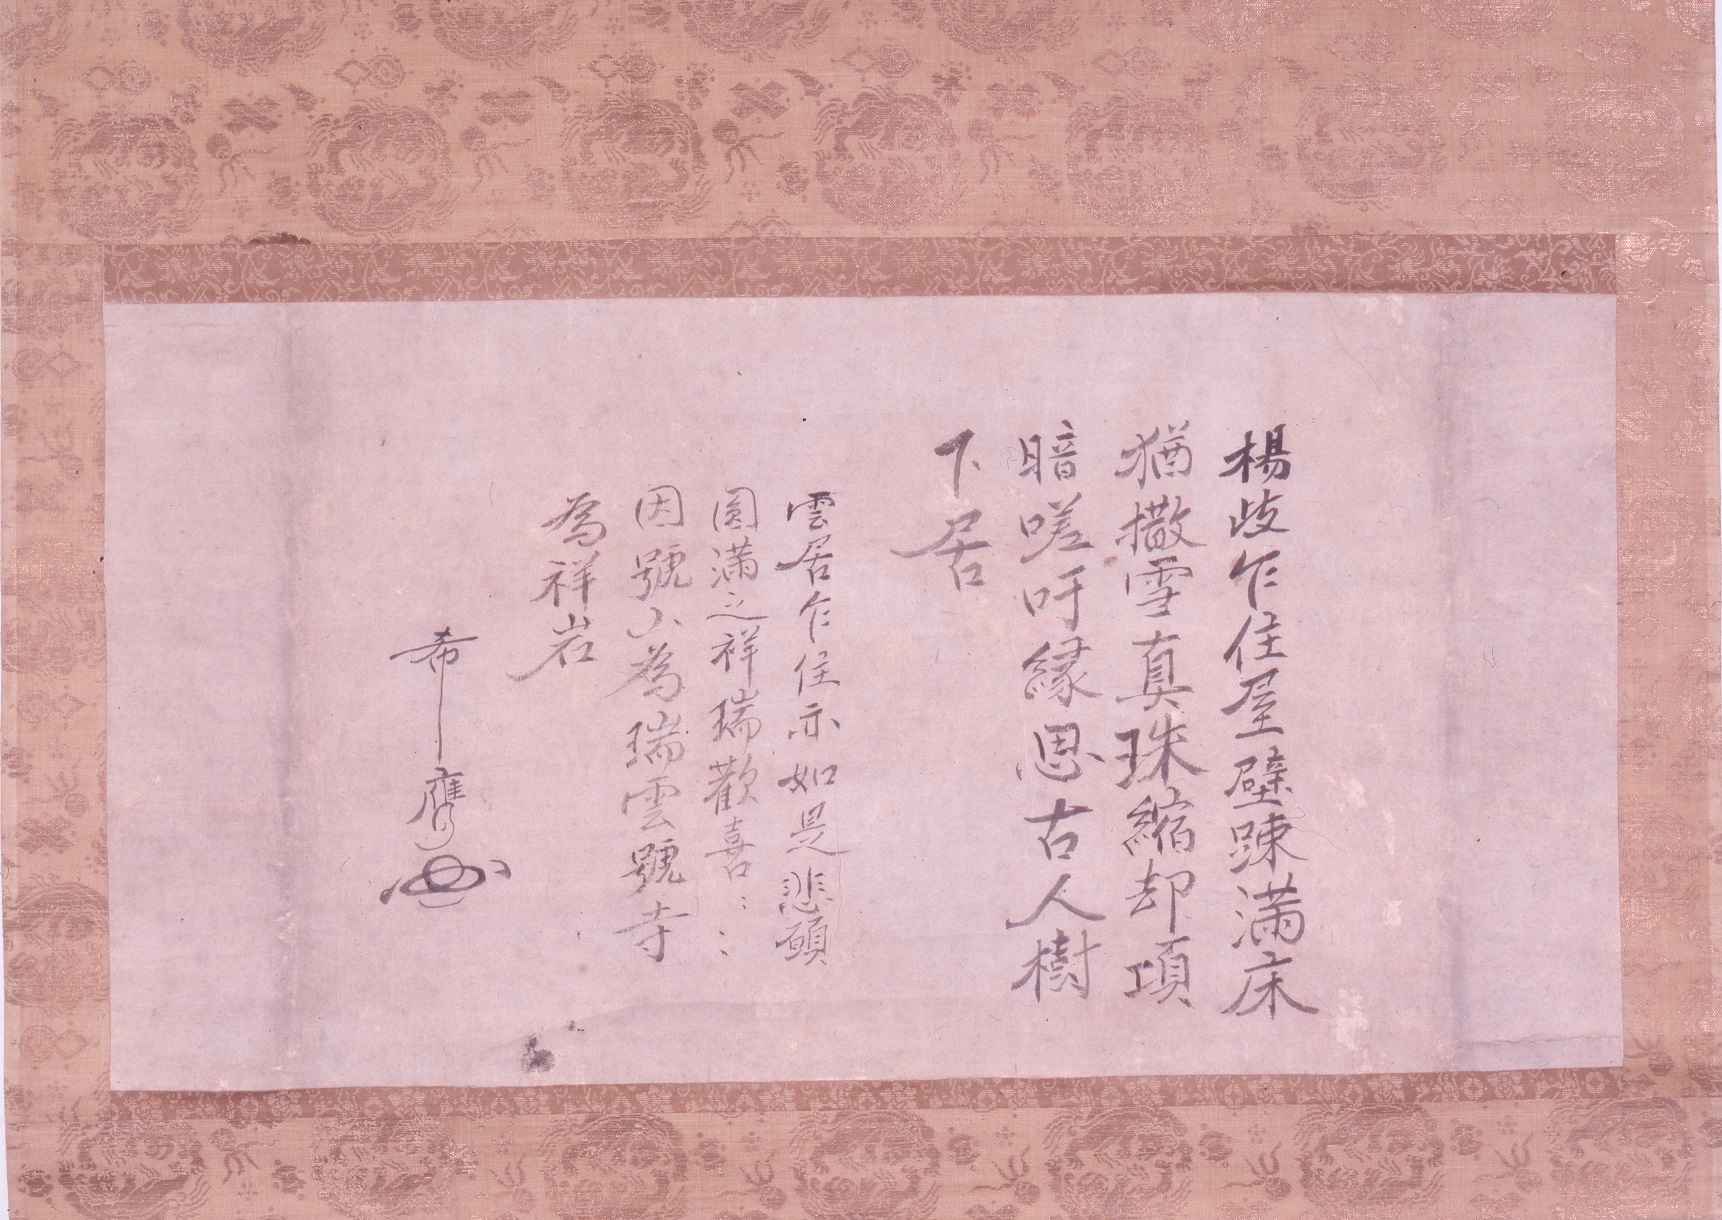 楊歧乍住屋壁踈満床
猶撒雪真珠縮却項
暗嗟吁縁思古人樹
下居
雲居乍住亦如是悲願
圓満之祥瑞歓喜〻〻
因號山為瑞雲號寺
為祥岩
希膺